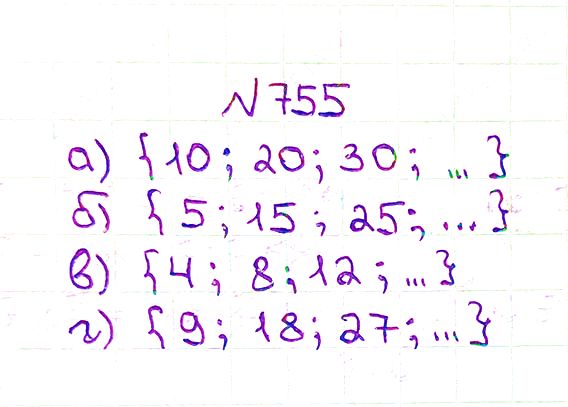 N 755
а) { 10; 20; 30; ... }
б) { 5; 15; 25; ... }
в) { 4; 8; 12; ... }
г) { 9; 18; 27; ... }